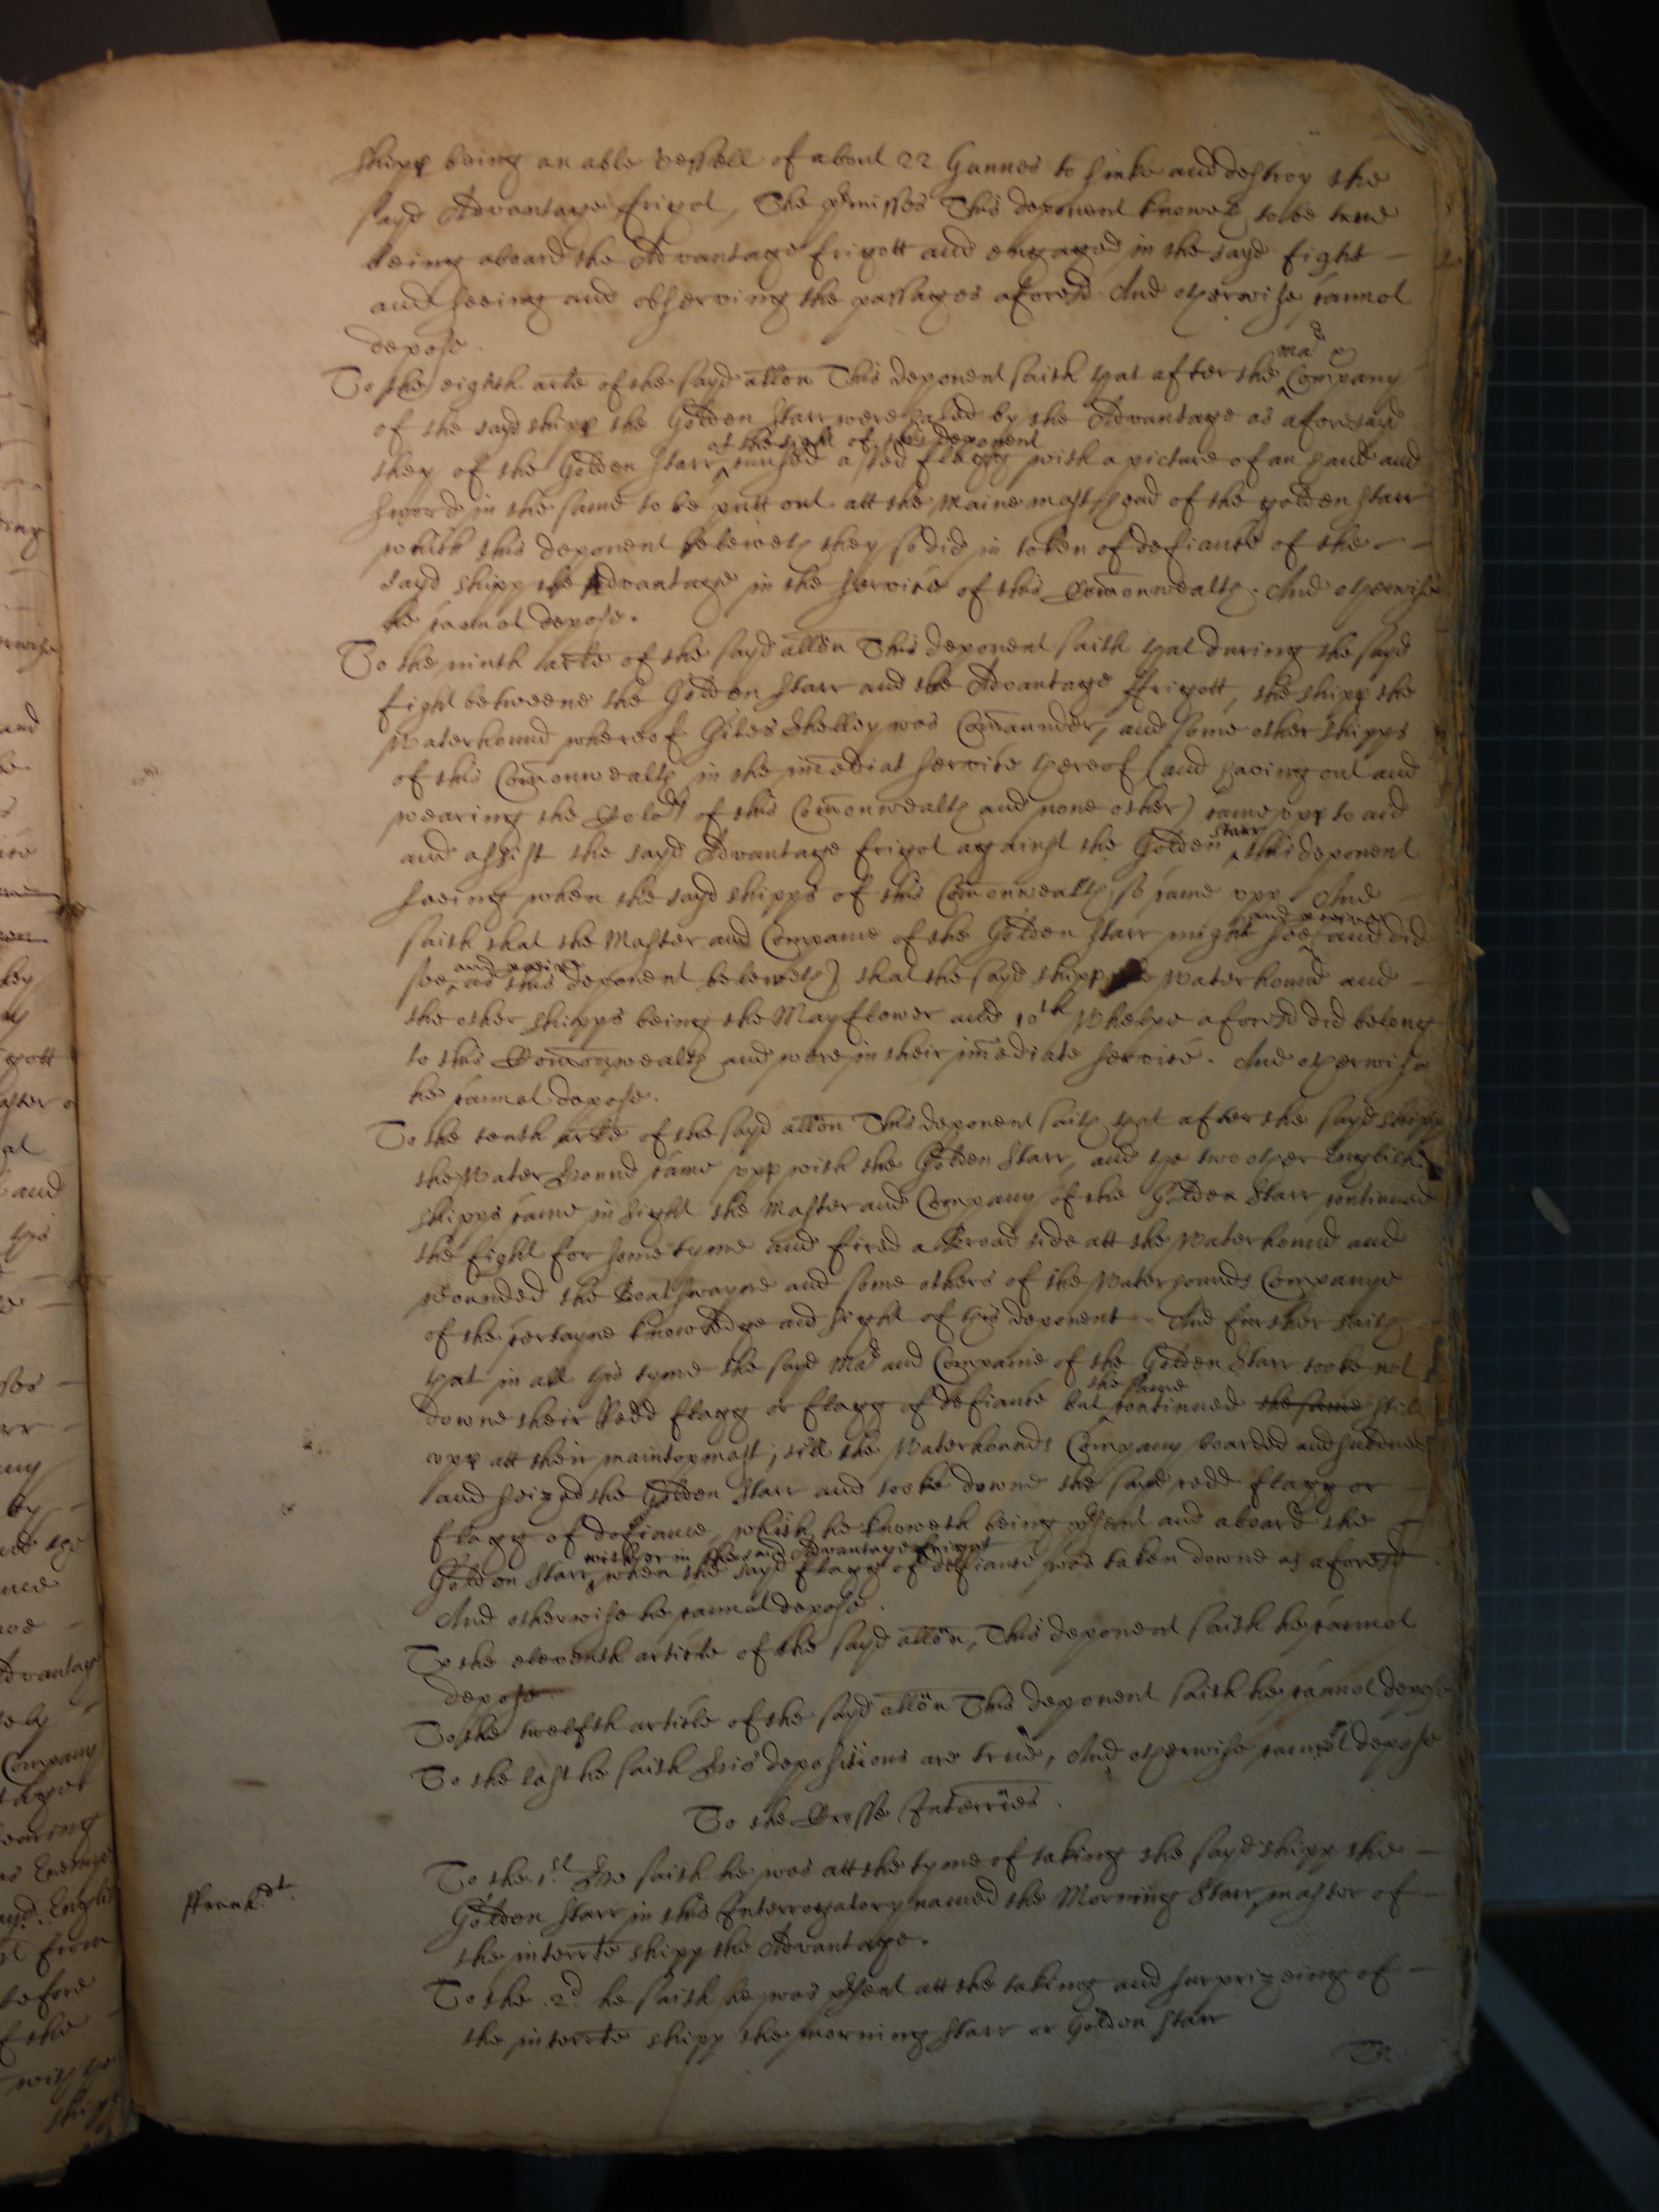 shipp being an able vessell of about 22 Gunnes to sinke and destroy the
sayd Advantage frigot, The p̄misses This deponent knoweth to be true
being aboard the Advantage frigott and engaged in the sayd fight -
and seeing and observing the passages aforesd. And otherwise cannot
depose.
To the eighth arẗle of the sayd allön This deponent saith that after the ^ Mar & Company
of the sayd shipp the Golden Starr were haled by the Advantage as aforesayd
they of the Golden Starr ^ at the sight of this deponent caused a red flagg with a picture of an hand and
sword in the same to be putt out att the Maine mast head of the golden Starr
which this deponent beleiveth they so did in token of defiance of the -
sayd shipp the Advantage in the service of this Com̄onwealth. And otherwise
he cannot depose.
To the ninth arẗle of the sayd allön This deponent saith that during the sayd
fight betweene the Golden Starr and the Advantage ffrigott, the shipp the
Waterhound whereof Giles Shelley was Com̄aunder, and some other shipps
of this Com̄onwealth in the im̄ediat service thereof (and having out and
wearing the Colors of this Com̄onwealth and none other) came upp to aid
and assist the sayd Advantage frigot against the Golden ^ Starr this deponent
seeing when the sayd shipps of this Com̄onwealth so came upp. And -
saith that the Master and Companie of the Golden Starr might see ^ and p̄ceive and did
see ^ and p̄ceive as this deponent beleiveth) that the sayd shipp the Waterhound and -
the other shipps being the Mayflower and 10th Whelpe aforesd did belong
to this Com̄onwealth and were in their im̄ediate service. And otherwise
he cannot depose.
To the tenth arẗle of the sayd allön This deponent saith that after the sayd shipp
the Water hound came upp with the Golden Starr, and the two other English
shipps came in sight the Master and Company of the Golden Starr continued
the fight for some tyme and fired a Broad side att the Waterhound and
wounded the Boatswayne and some others of the Waterhounds Companye
of the certayne knowledge and sight of this deponent. And further saith
that in all this tyme the sayd Mar and Companie of the Golden Starr tooke not
downe their Redd flagg or flagg of defiance but ^ the same continued the same still
upp att their maintopmast, till the Waterhounds Company boarded and subdued
and seized the Golden Starr and tooke downe the sayd redd flagg or -
flagg of defiance, which he knoweth being p̄sent and aboard the -
Golden Starr ^ with or in the sayd Advantage frigot when the sayd flagg of defiance was taken downe as aforesd
And otherwise he cannot depose.
To the eleventh article of the sayd allön, This deponent saith he cannot
depose.
To the twelfth article of the sayd allön This deponent saith he cannot depose
To the last he saith His depositions are true, And otherwise cannot depose
To the Crosse Interr̈ies.
To the 1st. Hee saith he was att the tyme of taking the sayd shipp the -
Golden Starr in this Interrogatory named the Morning Starr, master of -
the interrẗe shipp the Advantage.
To the .2d. he saith he was p̄sent att the taking and surprizeing of -
the interrẗe shipp the morning Starr or Golden Starr
To.
ffrank. dt.